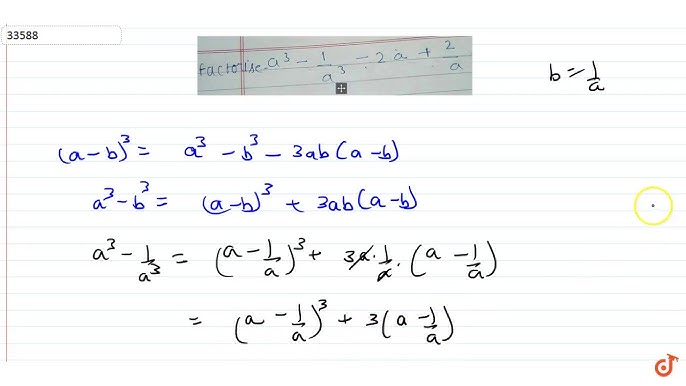 33588
Factorise a³ - 1/a³ - 2a + 2/a
b = 1/a
(a-b)³ = a³ - b³ - 3ab(a-b)
a³ - b³ = (a-b)³ + 3ab(a-b)
a³ - 1/a³ = (a - 1/a)³ + 3a·1/a·(a - 1/a)
= (a - 1/a)³ + 3(a - 1/a)